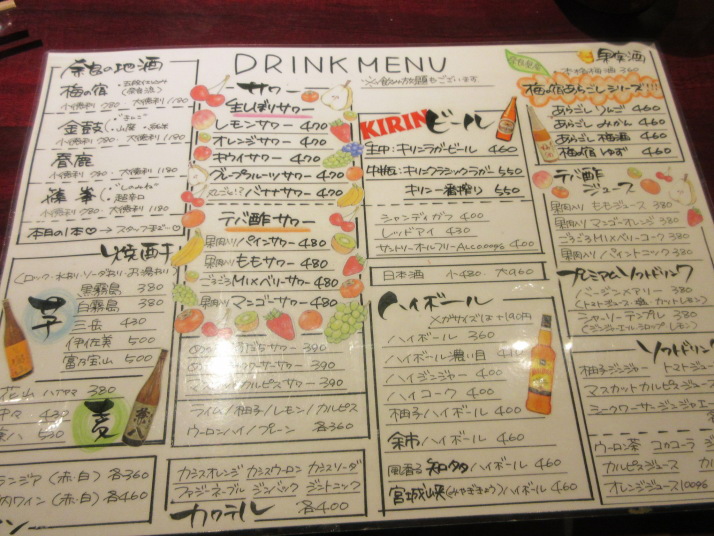 DRINK MENU
奈良の地酒
梅の宿
小徳利 780 大徳利 1180
金鼓
山廃 純米
小徳利 980 大徳利 1480
春鹿
篠峯
しのみね
超辛口
小徳利 980 大徳利 1480
本日の1本 → スタッフまで
焼酎
(ロック・水わり・ソーダわり・お湯わり)
芋
黒霧島 380
白霧島 380
三岳 430
伊佐美 500
富乃宝山 500
麦
サワー
生しぼりサワー
レモンサワー 470
オレンジサワー 470
キウイサワー 470
グレープフルーツサワー 470
バナナサワー 470
デバ酢サワー
果肉入り パインサワー 480
果肉入り ももサワー 480
ごろごろMIXベリーサワー 480
果肉入り マンゴーサワー 480
カルピスサワー 390
ライム/柚子/レモン/カルピス
ウーロンハイ/プレーン 各360
カシスオレンジ カシスウーロン カシスソーダ
ファジーネーブル ジンバック ジントニック
カクテル 各400
KIRIN ビール
生中:キリンラガービール 460
中瓶:キリンクラシックラガー 550
キリン一番搾り 550
シャンディガフ 400
レッドアイ 430
サントリーオールフリー ALC0.00% 400
日本酒 小480 大960
ハイボール
メガサイズは+190円
ハイボール 360
ハイボール濃い目 410
ハイジンジャー 400
ハイコーク 400
柚子ハイボール 400
余市ハイボール 460
風香る 知多ハイボール 460
宮城峡(みやぎきょう)ハイボール 460
果実酒
本格梅酒 360
梅の宿あらごしシリーズ!!!
あらごし りんご 460
あらごし みかん 460
あらごし 梅酒 460
梅の宿 ゆず 460
デバ酢ジュース
果肉入り ももジュース 380
果肉入り マンゴーオレンジ 380
ごろごろMIXベリーコーク 380
果肉入り パイントニック 380
プレミアムソフトドリンク
バージンメアリー 380
(トマトジュース・塩・カットレモン)
シャーリーテンプル 380
(ジンジャーエール・シロップ・レモン)
ソフトドリンク
柚子ジンジャー トマトジュー
マスカットカルピスジュース
シークワーサージンジャエー
ウーロン茶 コカコーラ
カルピスジュース
オレンジジュース100%
ンジア(赤・白)各360
ワイン(赤・白)各460